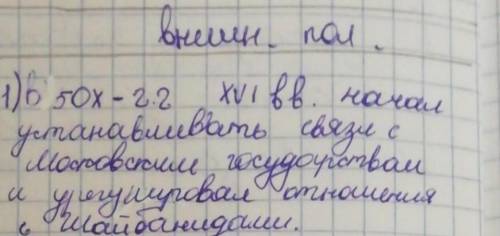 внешн. пол.
1) В 50х-г.г XVI вв. начал
устанавливать связи с
Московским государством
и урегулировал отношения
с Шайбанидами.